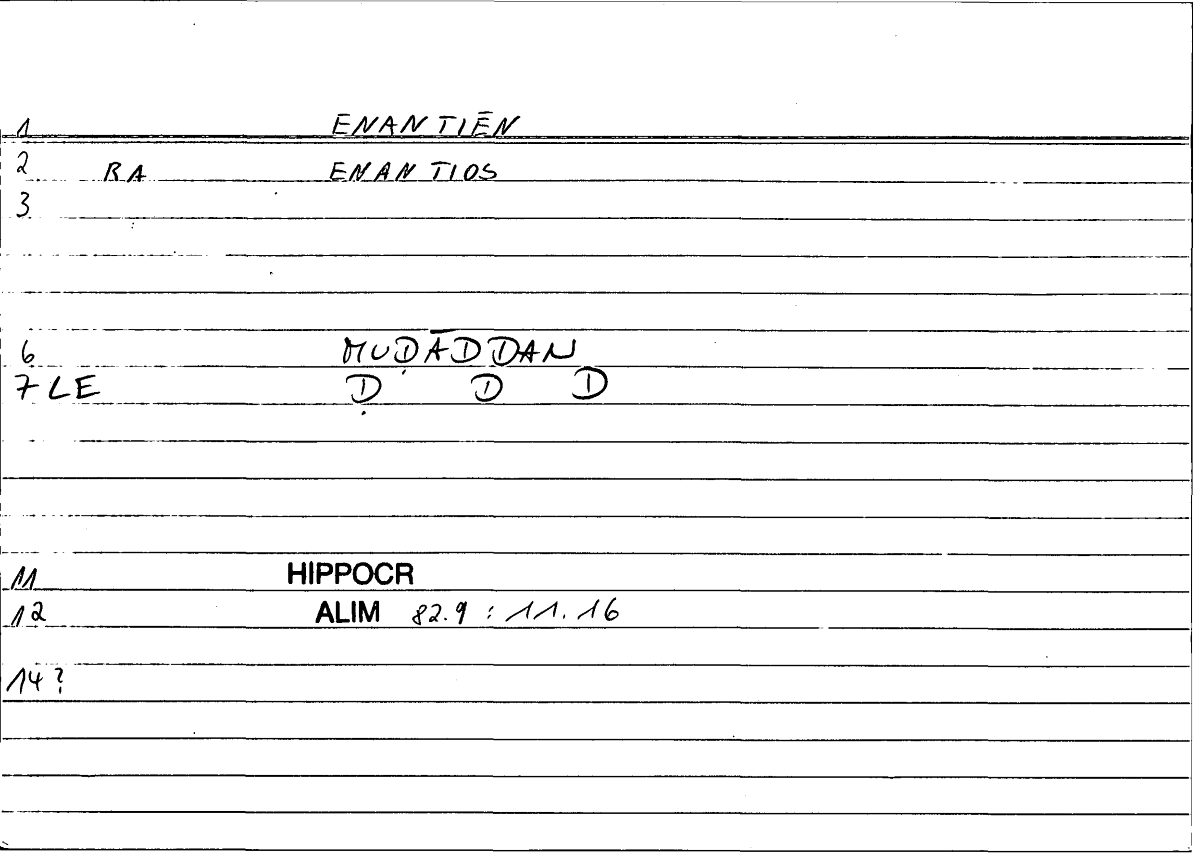 1 ENANTIĒN
2 RA ENANTIOS
3
6 MUḌĀDDAN
7 LE Ḍ D D
11 HIPPOCR
12 ALIM 82.9 : 11.16
14 ?